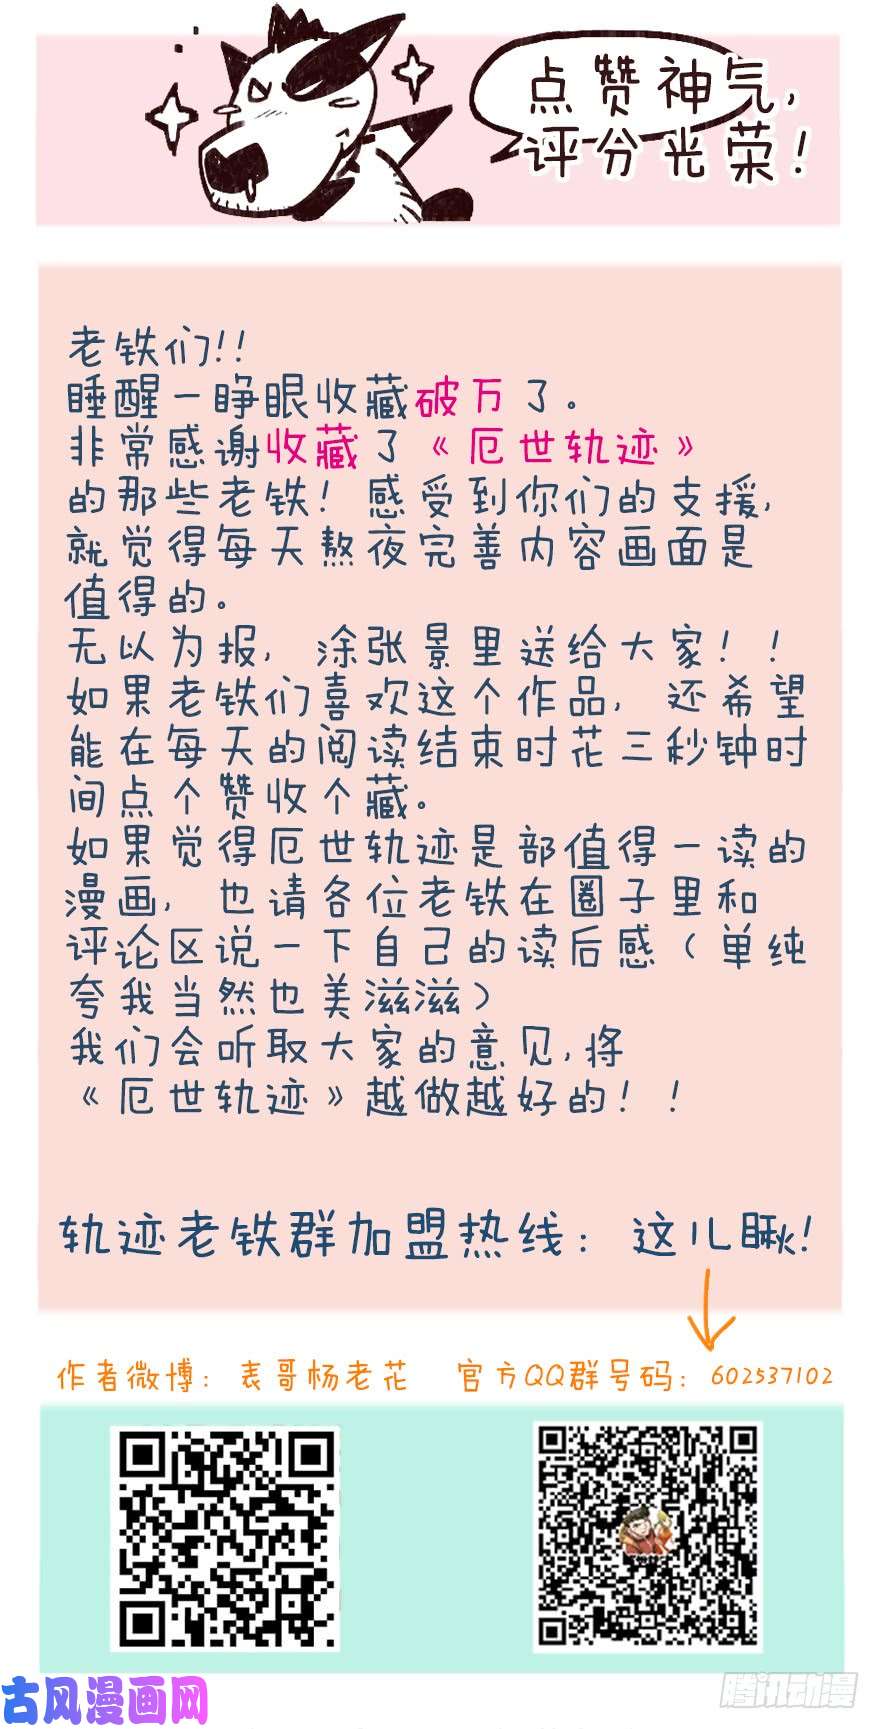 点赞神气,
评分光荣!
老铁们!!
睡醒一睁眼收藏破万了。
非常感谢收藏了《厄世轨迹》
的那些老铁!感受到你们的支援,
就觉得每天熬夜完善内容画面是
值得的。
无以为报,涂张景里送给大家!!
如果老铁们喜欢这个作品,还希望
能在每天的阅读结束时花三秒钟时
间点个赞收个藏。
如果觉得厄世轨迹是部值得一读的
漫画,也请各位老铁在圈子里和
评论区说一下自己的读后感(单纯
夸我当然也美滋滋)
我们会听取大家的意见,将
《厄世轨迹》越做越好的!!
轨迹老铁群加盟热线:这儿瞅!
作者微博:表哥杨老花 官方QQ群号码:602537102
古风漫画网
腾讯动漫